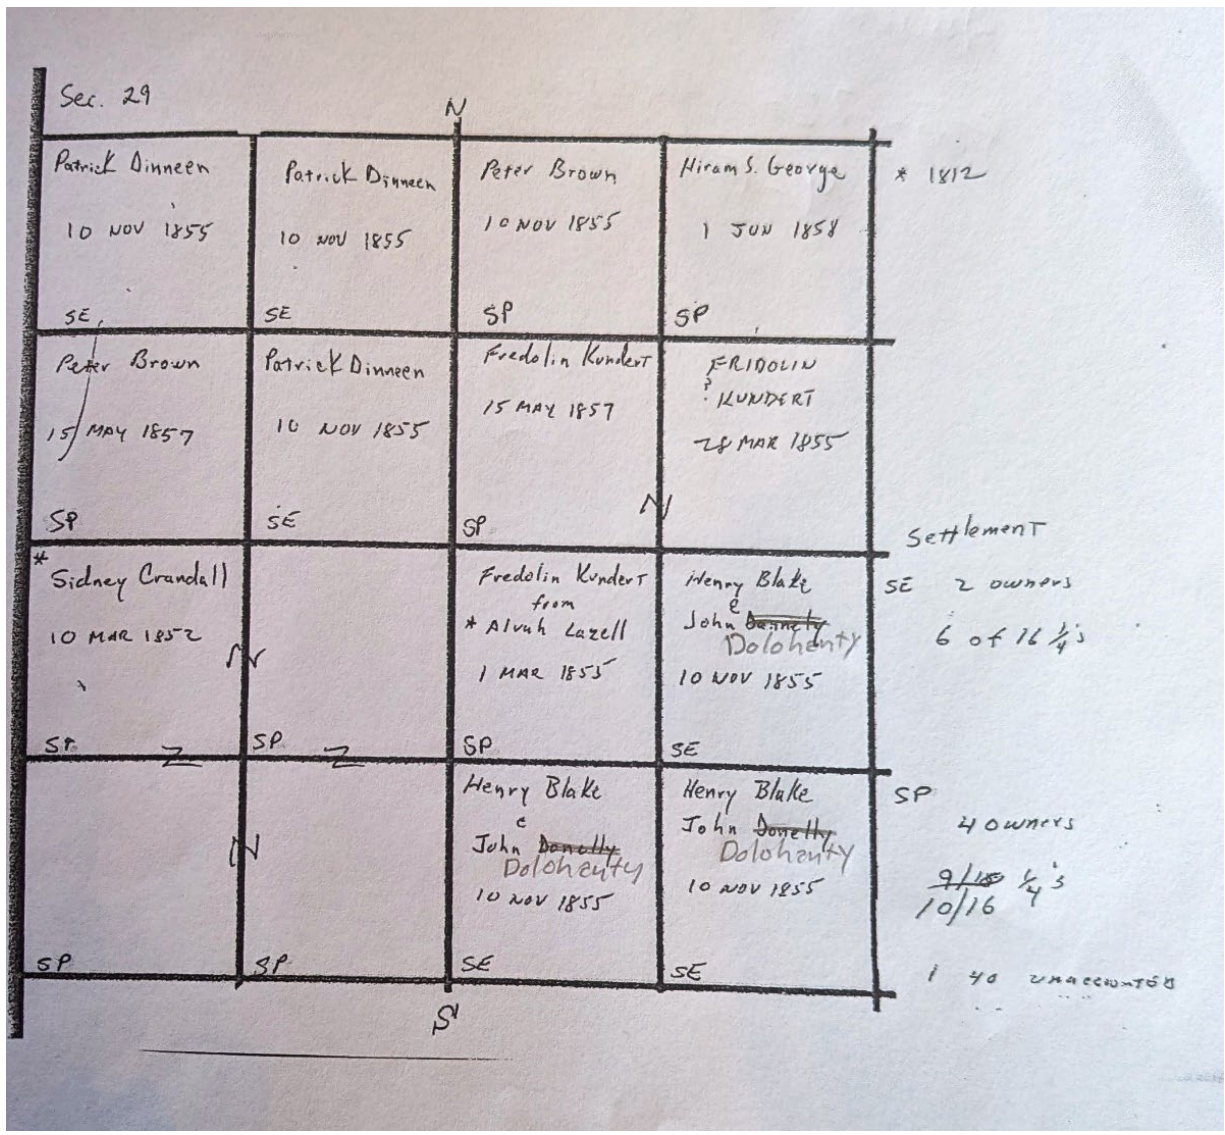 Sec. 29
N
Patrick Dinneen
10 NOV 1855
SE
Patrick Dinneen
10 NOV 1855
SE
Peter Brown
10 NOV 1855
SP
Hiram S. George
1 JUN 1858
SP
* 1812
Peter Brown
15 MAY 1857
SP
Patrick Dinneen
10 NOV 1855
SE
Fredolin Kundert
15 MAY 1857
SP
FRIDOLIN
?
KUNDERT
28 MAR 1855
N
*
Sidney Crandall
10 MAR 1852
SP
N
Z
SP
Z
Fredolin Kundert
from
* Alvah Lazell
1 MAR 1855
SP
Henry Blake
&
John Donnelly
Dolohanty
10 NOV 1855
SE
Settlement
SE 2 owners
6 of 16 1/4's
SP
N
SP
Henry Blake
&
John Donelly
Dolohanty
10 NOV 1855
SE
Henry Blake
John Donelly
Dolohanty
10 NOV 1855
SE
SP
4 owners
9/15 1/4's
10/16
1 40 unaccounted
S